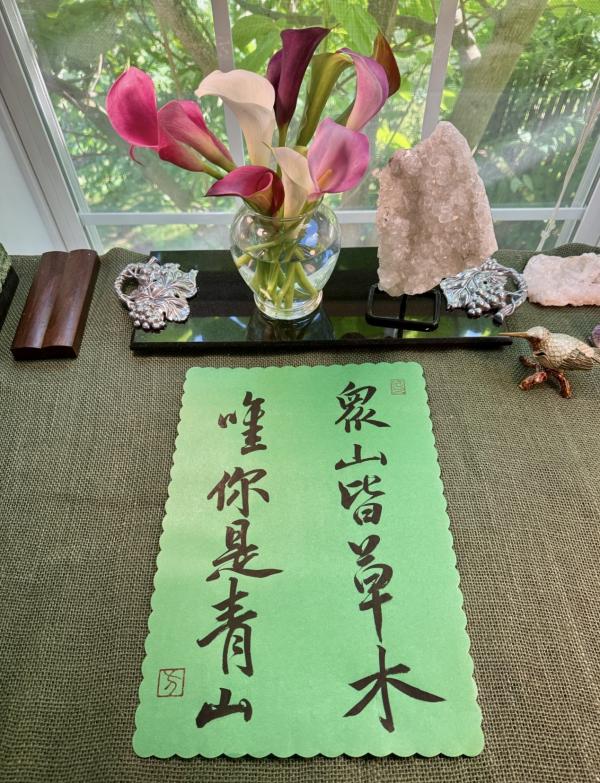 眾山皆草木
唯你是青山